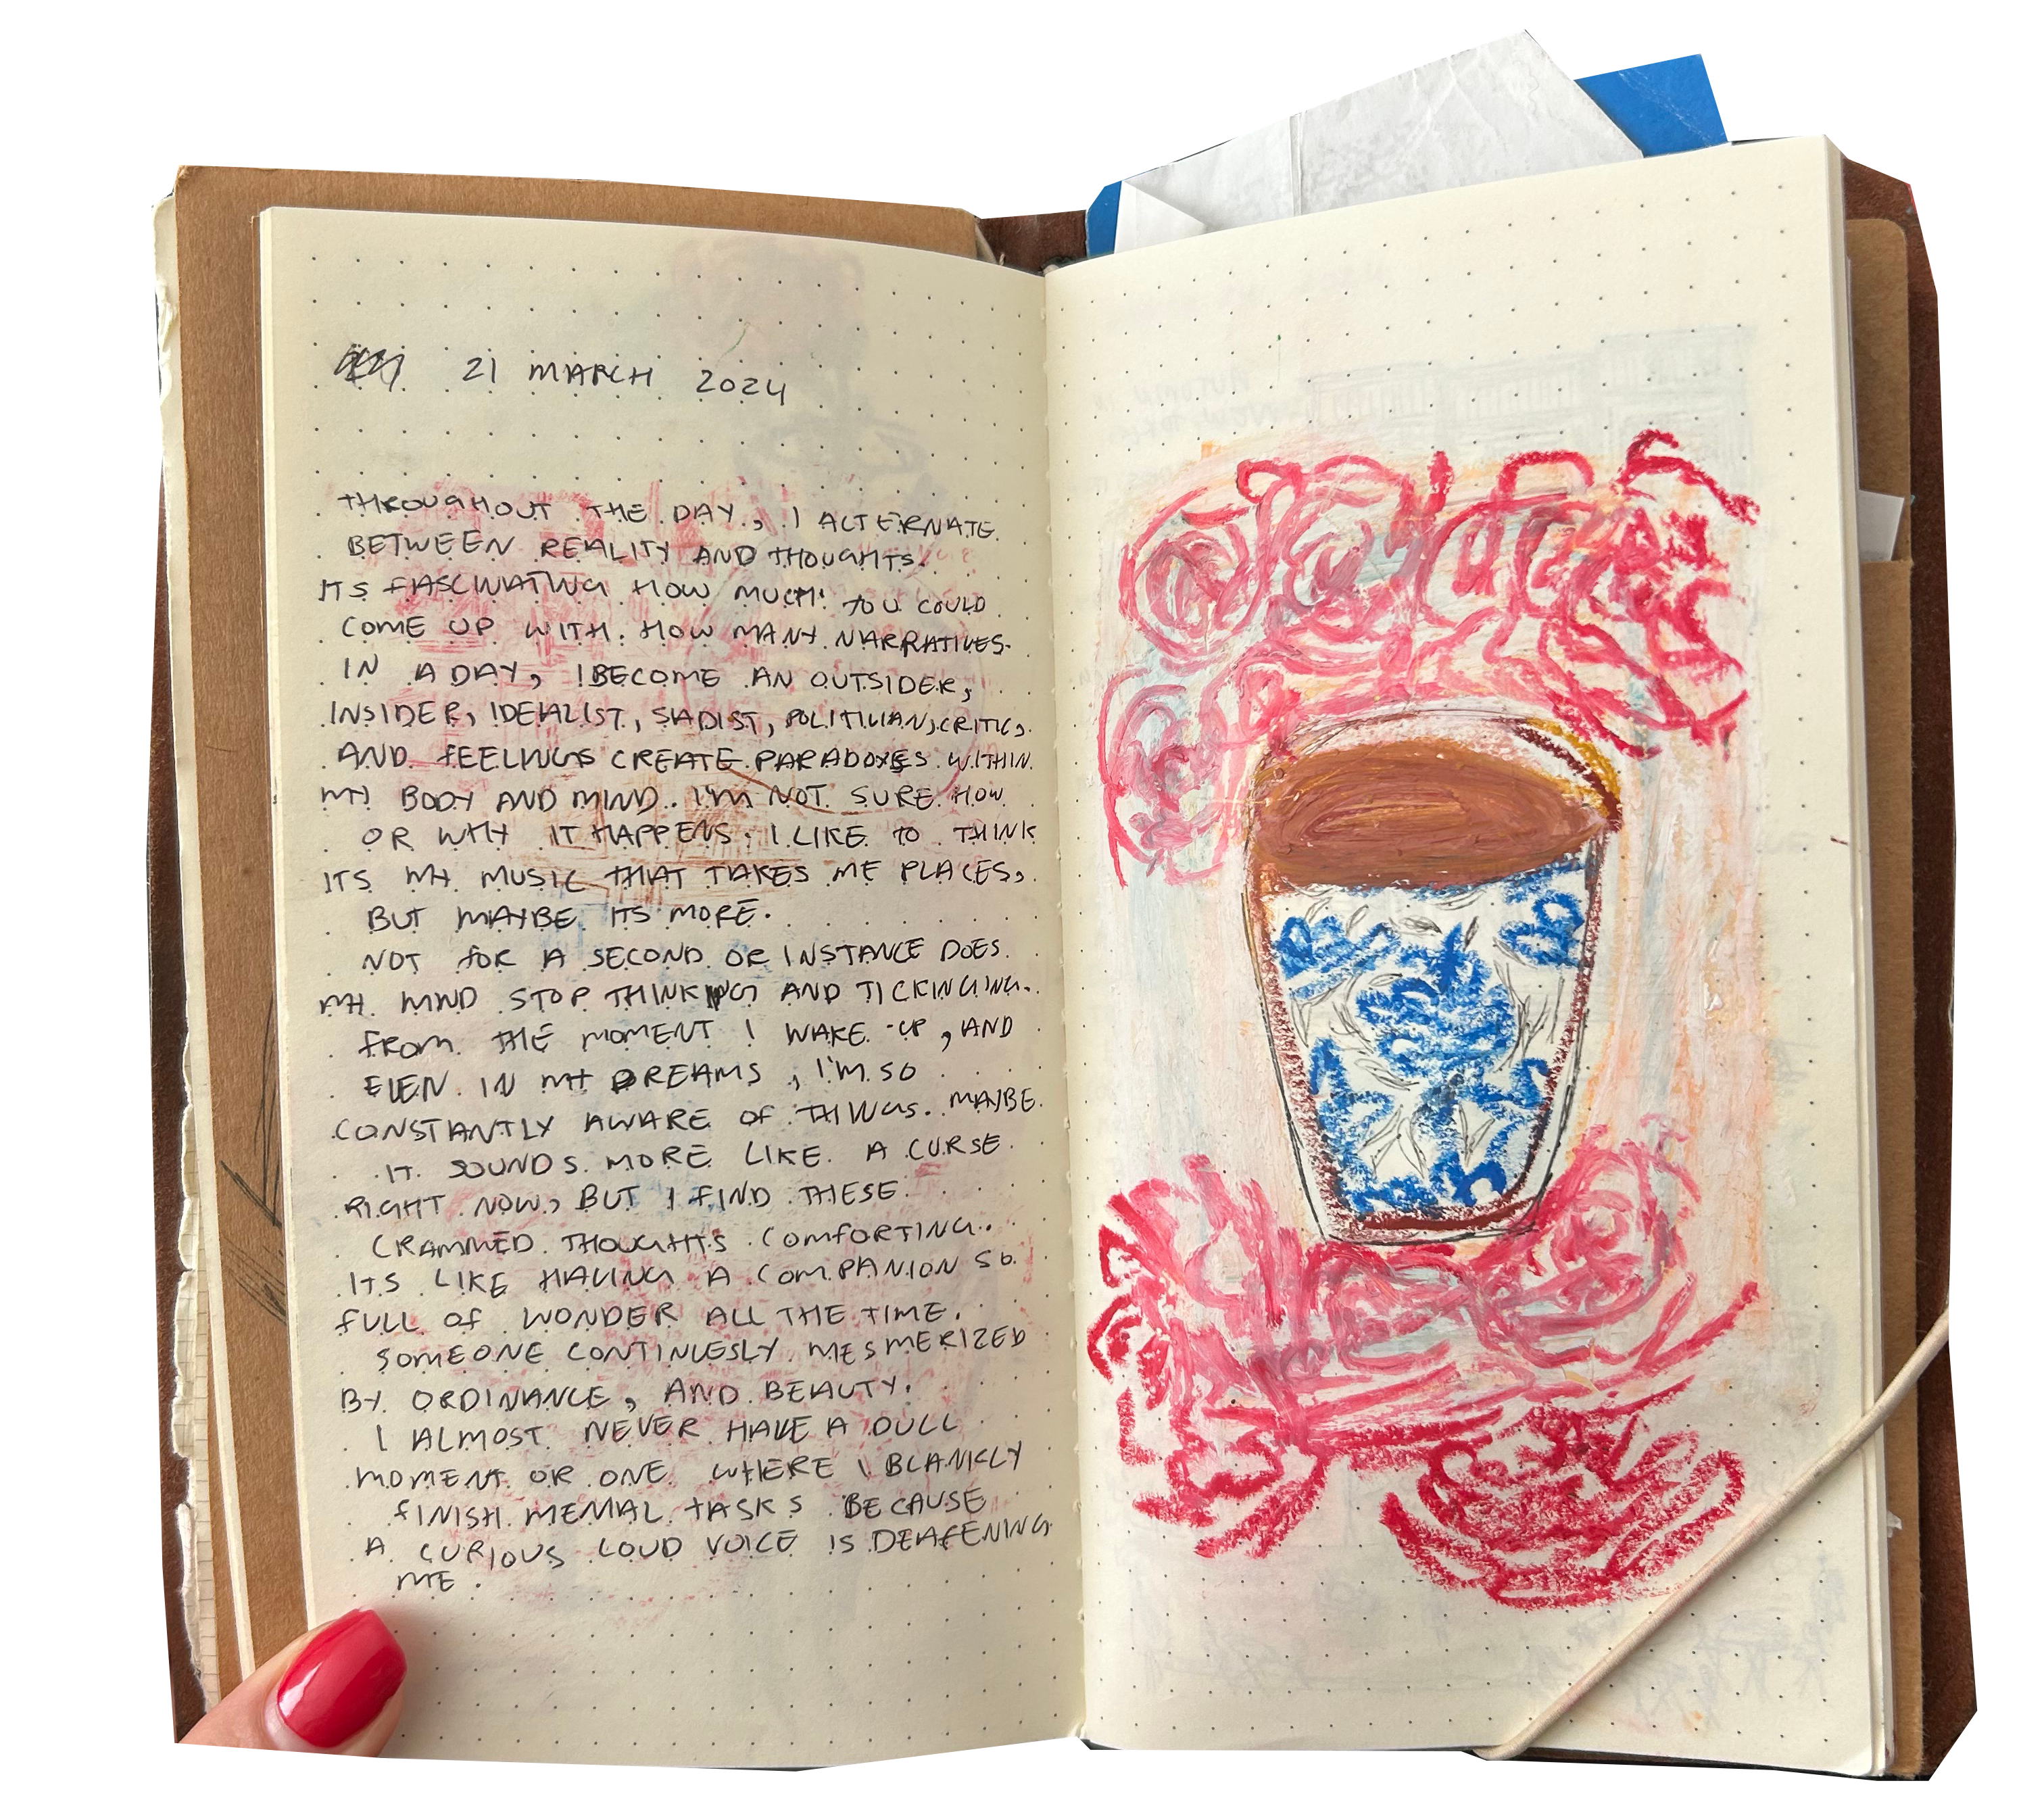 21 MARCH 2024
THROUGHOUT THE DAY, I ALTERNATE
BETWEEN REALITY AND THOUGHTS.
ITS FASCINATING HOW MUCH YOU COULD
COME UP WITH. HOW MANY NARRATIVES.
IN A DAY, I BECOME AN OUTSIDER,
INSIDER, IDEALIST, SADIST, POLITICIAN, CRITIC,
AND FEELINGS CREATE PARADOXES WITHIN
MY BODY AND MIND. I'M NOT SURE HOW
OR WHY IT HAPPENS. I LIKE TO THINK
ITS MY MUSIC THAT TAKES ME PLACES,
BUT MAYBE ITS MORE.
NOT FOR A SECOND OR INSTANCE DOES
MY MIND STOP THINKING AND TICKINGING.
FROM THE MOMENT I WAKE UP, AND
EVEN IN MY DREAMS, I'M SO
CONSTANTLY AWARE OF THINGS. MAYBE
IT SOUNDS MORE LIKE A CURSE
RIGHT NOW, BUT I FIND THESE
CRAMMED THOUGHTS COMFORTING.
ITS LIKE HAVING A COMPANION SO
FULL OF WONDER ALL THE TIME.
SOMEONE CONTINUESLY MESMERIZED
BY ORDINANCE, AND BEAUTY.
I ALMOST NEVER HAVE A DULL
MOMENT OR ONE WHERE I BLANKLY
FINISH MEMIAL TASKS BECAUSE
A CURIOUS LOUD VOICE IS DEAFENING
ME.